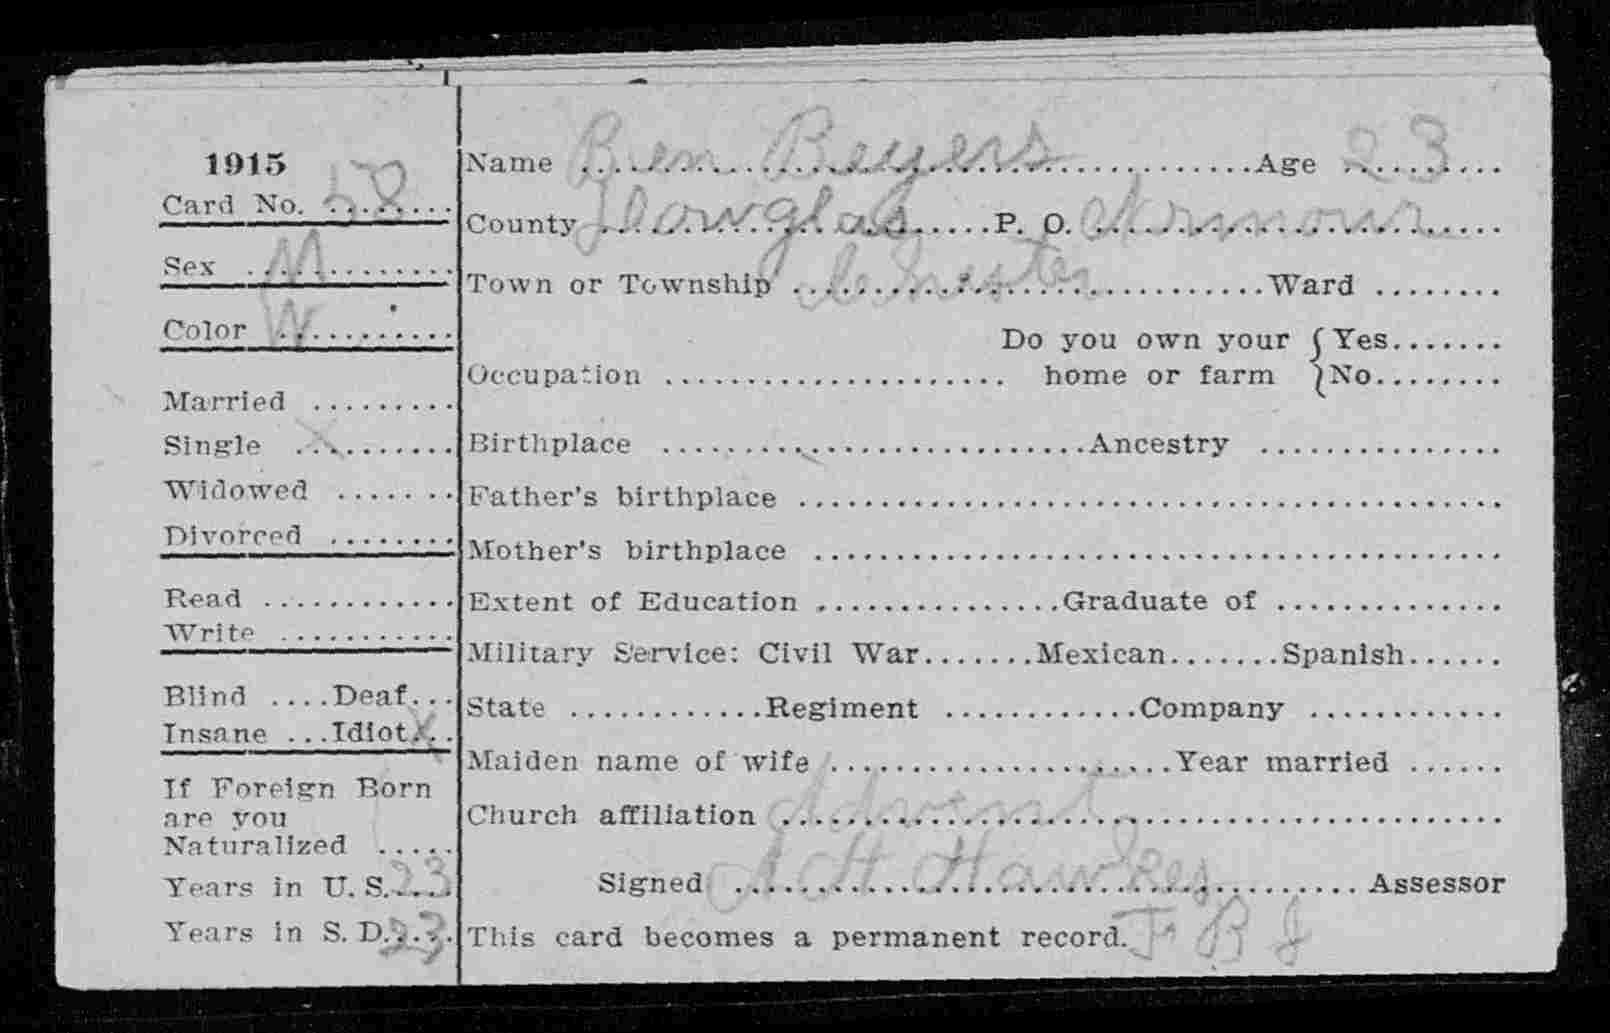 1915
Card No. 58
Sex M
Color W
Married
Single X
Widowed
Divorced
Read
Write
Blind Deaf
Insane Idiot X
If Foreign Born
are you
Naturalized
Years in U. S. 23
Years in S. D. 23
Name Ben Beyers Age 23
County Douglas P. O. Armour
Town or Township Chester Ward
Do you own your Yes
Occupation home or farm No
Birthplace Ancestry
Father's birthplace
Mother's birthplace
Extent of Education Graduate of
Military Service: Civil War Mexican Spanish
State Regiment Company
Maiden name of wife Year married
Church affiliation Advent
Signed A H Hawkes Assessor
This card becomes a permanent record. F B J